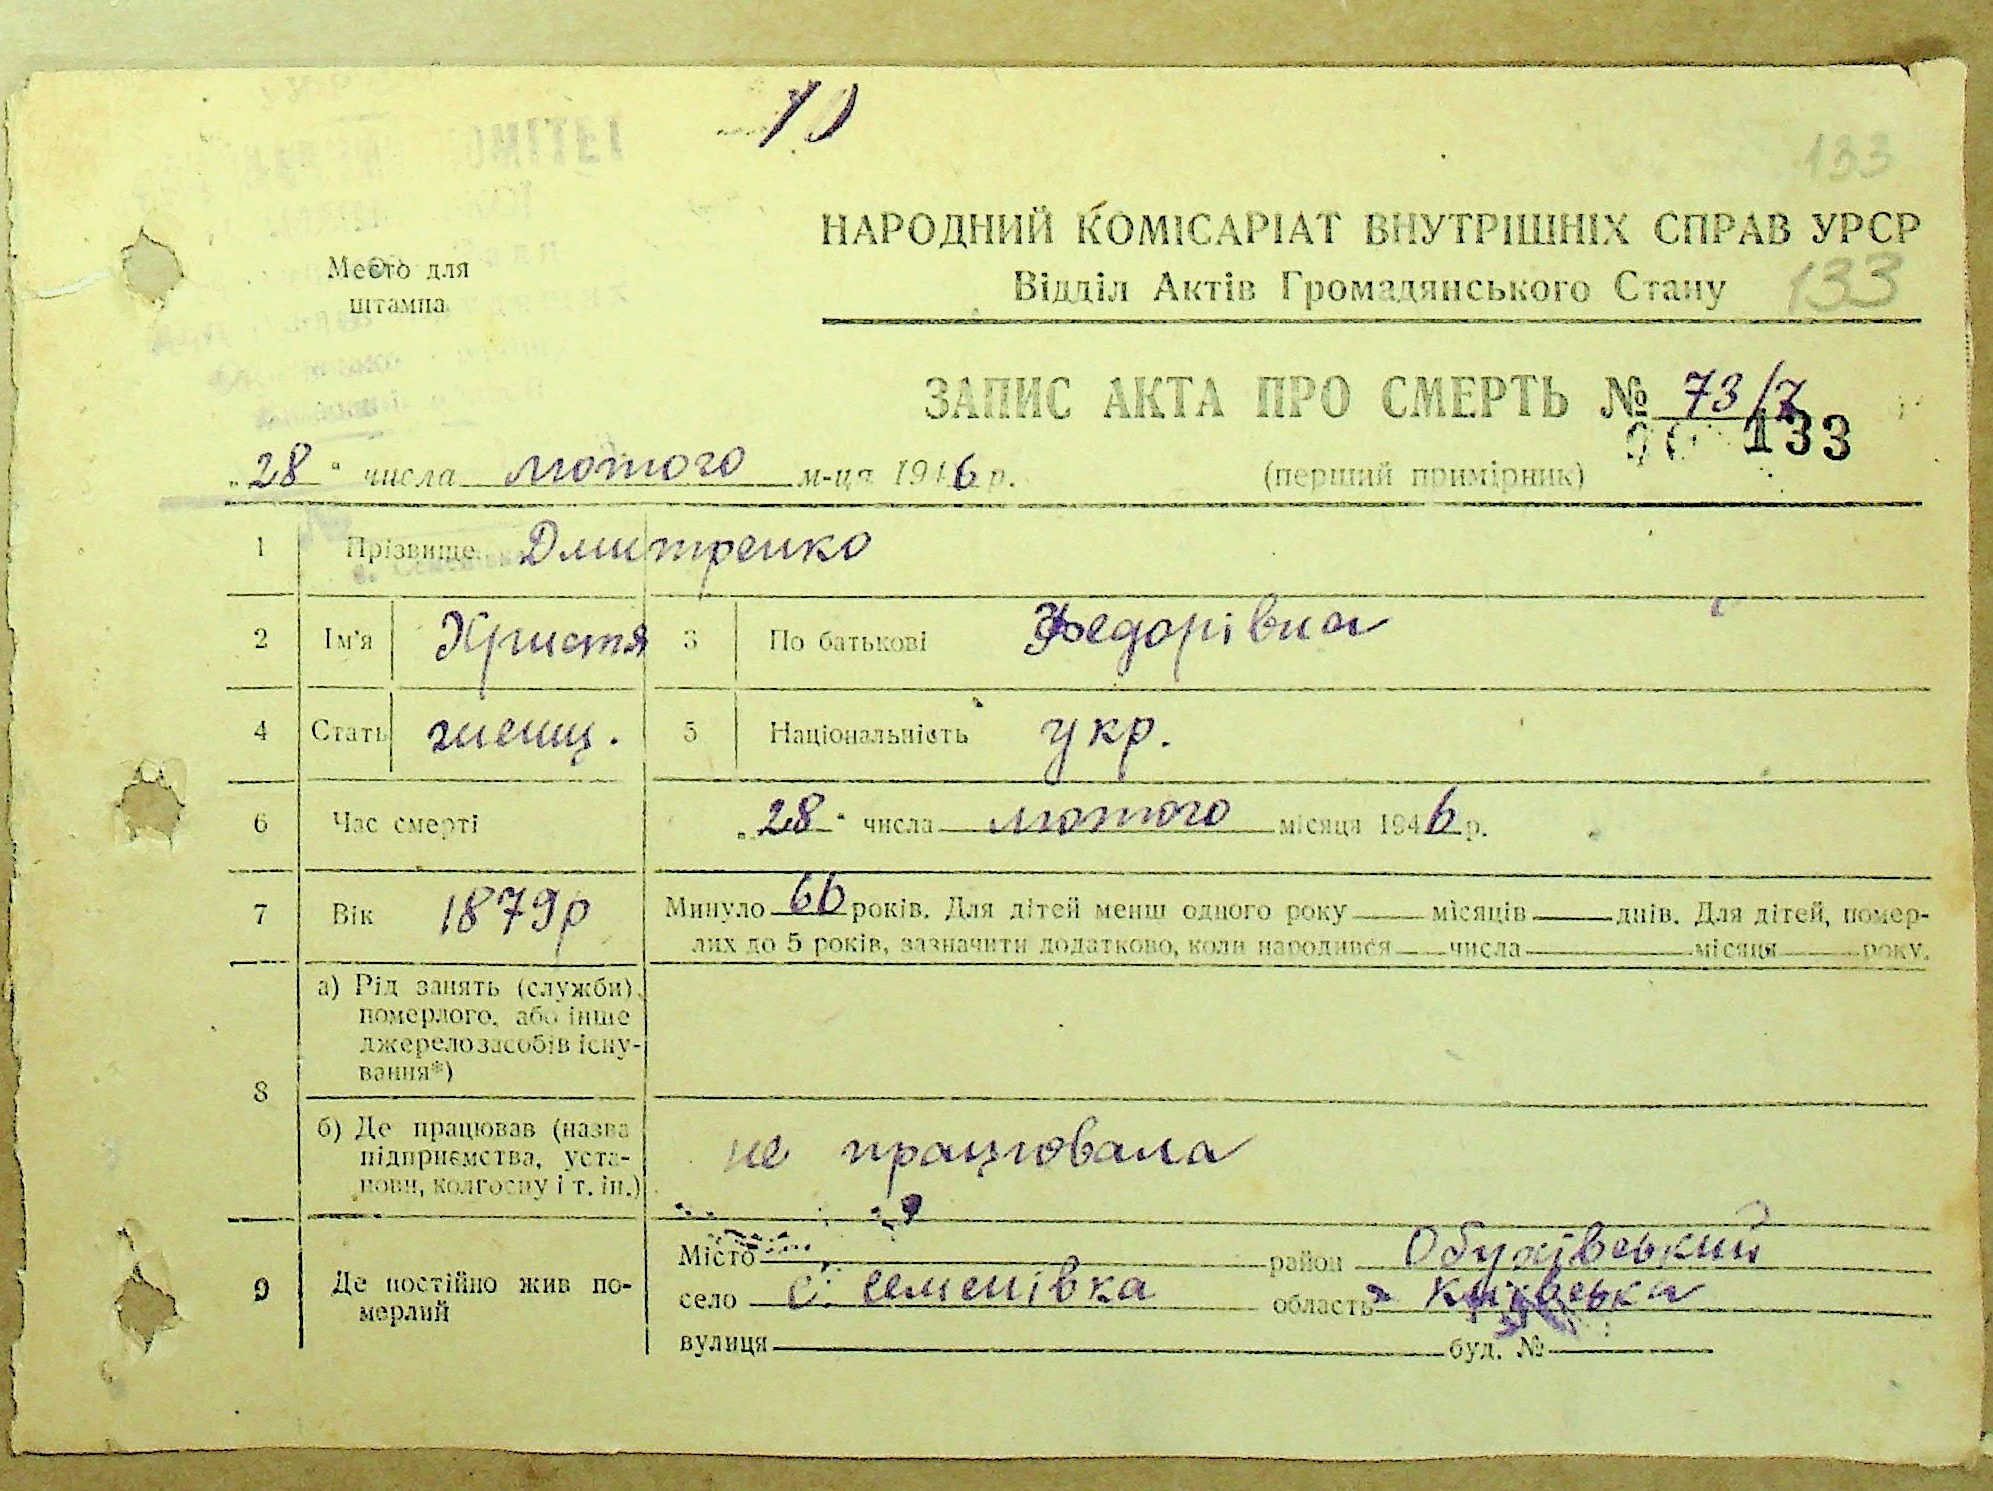 10
133
НАРОДНИЙ КОМІСАРІАТ ВНУТРІШНІХ СПРАВ УРСР
Место для
штампа
Відділ Актів Громадянського Стану 133
ЗАПИС АКТА ПРО СМЕРТЬ № 73/7
133
"28" числа лютого м-ця 1946 р. (перший примірник)
1 Прізвище Дмитренко
2 Ім'я Христя 3 По батькові Федорівна
4 Стать женщ. 5 Національність укр.
6 Час смерті "28" числа лютого місяця 1946 р.
7 Вік 1879р Минуло 66 років. Для дітей менш одного року місяців днів. Для дітей, помер-
лих до 5 років, зазначити додатково, коли народився числа місяця року.
8 а) Рід занять (служби)
померлого, або інше
джерело засобів існу-
вання*)
б) Де працював (назва
підприємства, уста-
нови, колгоспу і т. ін.) не працювала
9 Де постійно жив по-
мерлий
Місто район Обухівський
село с. Семенівка область Київська
вулиця буд. №